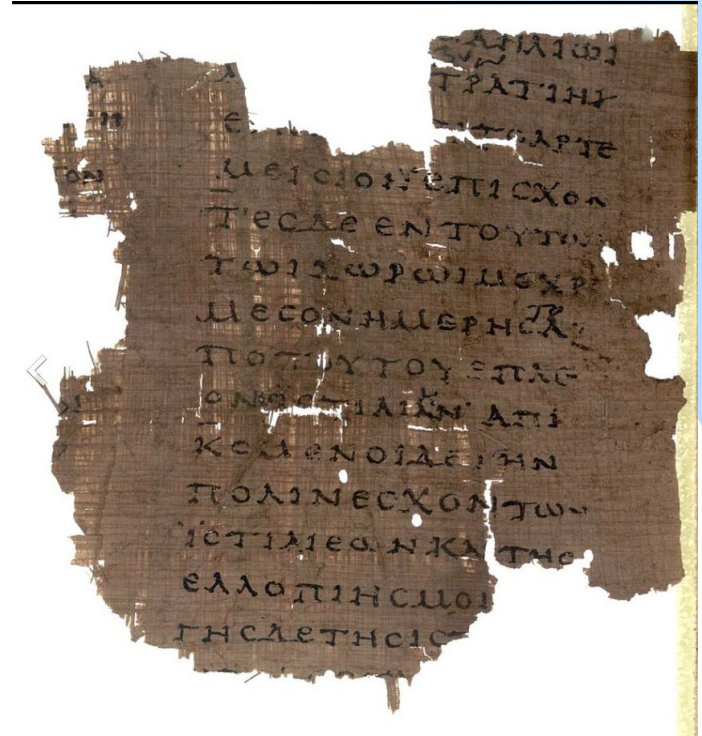 ΗΛΙΩΙ
ΤΡΑΤΙΗ
ΤΟΑΡΤΕ
ΜΕΙCΙΟΝ ΕΠΙCΧΟΝ
ΤΕCΔΕ ΕΝ ΤΟΥΤΩ
ΤΩΙΧΩΡΩΙΜΕΧΡΙ
ΜΕCΟΝΗΜΕΡΗCΑ
ΠΟΤΟΥΤΟΥΕΠΛΕ
ΟΝΕCΤΙΑΙΑΝ ΑΠΙ
ΚΟΜΕΝΟΙΔΕΤΗΝ
ΠΟΛΙΝΕCΧΟΝΤΩΝ
ΪCΤΙΑΙΕΩΝΚΑΙΤΗC
ΕΛΛΟΠΙΗCΜΟΙ
ΓΗCΔΕΤΗCΙCΤ